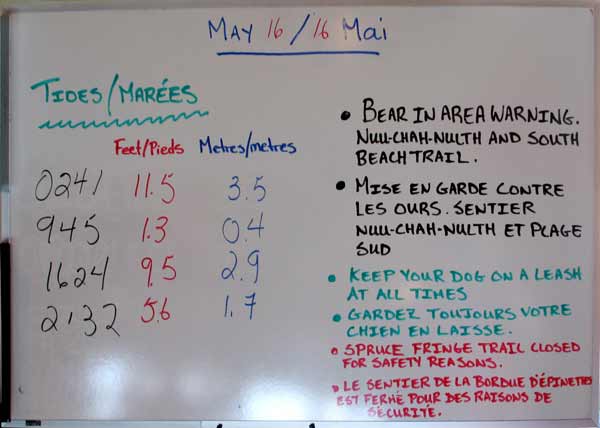 MAY 16 / 16 Mai
TIDES/MARÉES
Feet/Pieds Metres/metres
0241 11.5 3.5
945 1.3 0.4
1624 9.5 2.9
2132 5.6 1.7
• BEAR IN AREA WARNING.
NUU-CHAH-NULTH AND SOUTH
BEACH TRAIL.
• MISE EN GARDE CONTRE
LES OURS. SENTIER
NUU-CHAH-NULTH ET PLAGE
SUD
• KEEP YOUR DOG ON A LEASH
AT ALL TIMES
• GARDEZ TOUJOURS VOTRE
CHIEN EN LAISSE.
• SPRUCE FRINGE TRAIL CLOSED
FOR SAFETY REASONS.
• LE SENTIER DE LA BORDUE D'ÉPINETTES
EST FERMÉ POUR DES RAISONS DE
SÉCURITÉ.